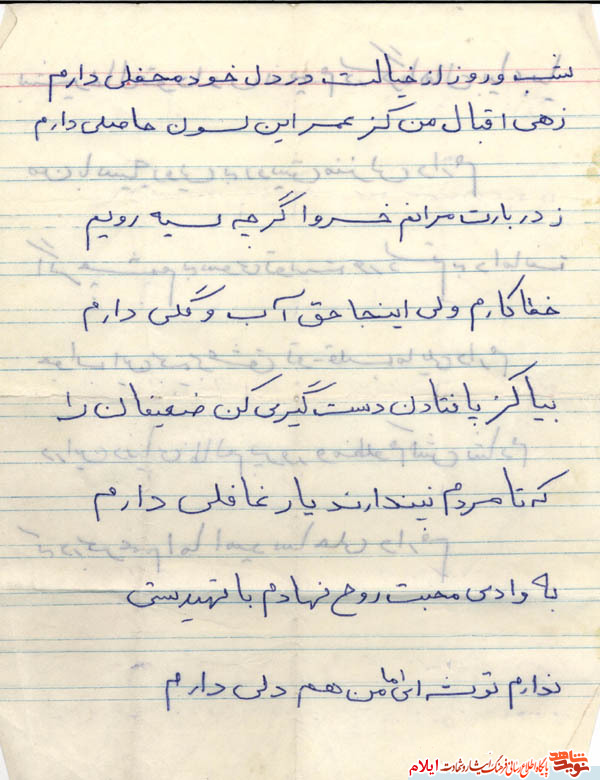 شب و روز از خیالت در دل خود محفلی دارم
زهی اقبال من کز عمر این سون حاصلی دارم
ز دربارت مرانم خسروا گرچه سیه رویم
خطاکارم ولی اینجا حق آب و گلی دارم
بیا کز پا فتادن دست گیری کن ضعیفان را
که تا مردم نپندارند یار غافلی دارم
به وادی محبت روح نهادم با تهیدستی
ندارم توشه ای اما من هم دلی دارم
نوید شاهد
پایگاه اطلاع رسانی فرهنگ ایثار و شهادت ایلام